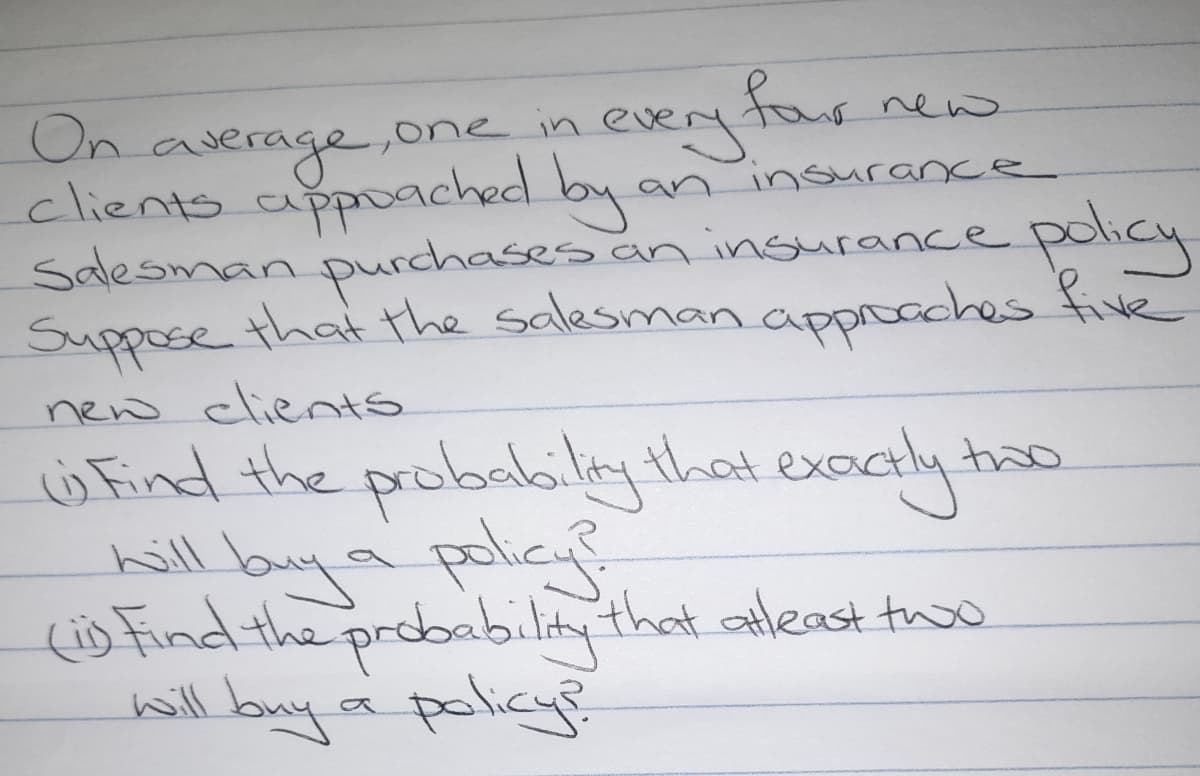 On average, one in every four new
clients approached by an insurance
Salesman purchases an insurance policy
Suppose that the salesman approaches five
new clients
(i) Find the probability that exactly two
will buy a policy?
(ii) Find the probability that atleast two
will buy a policy?